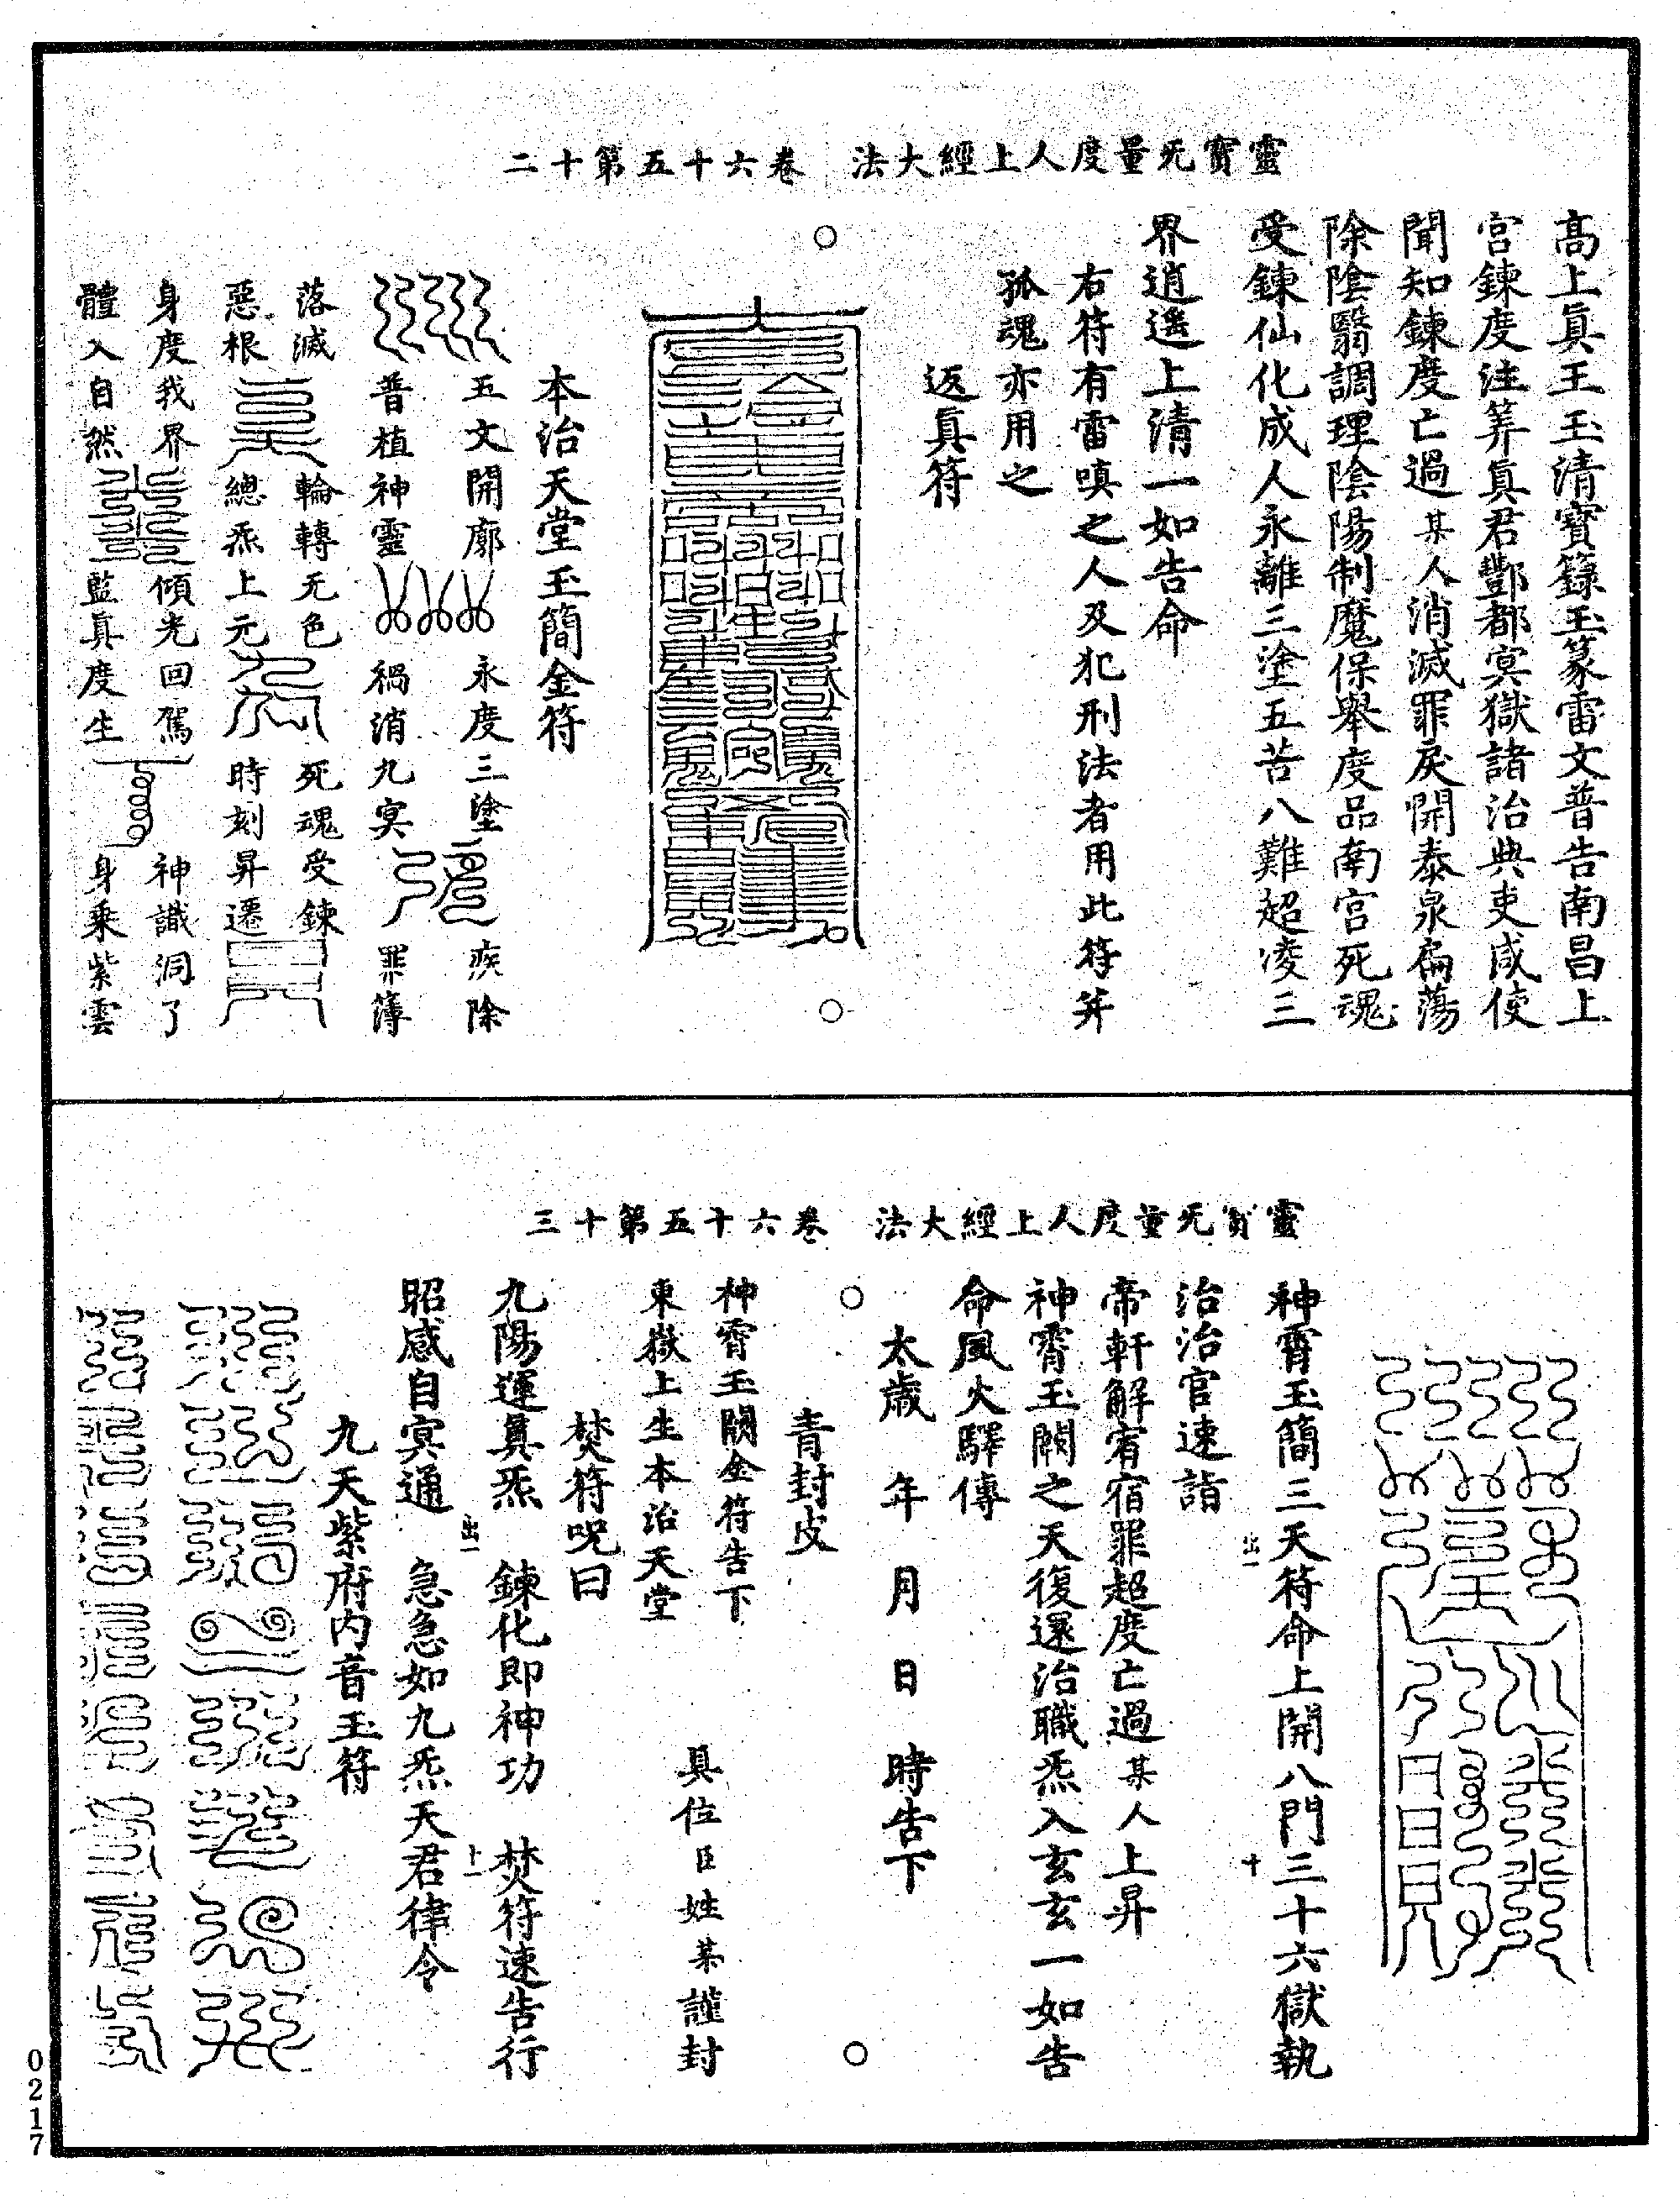 靈寶无量度人上經大法　卷六十五第十二
高上眞王玉清寶籙玉篆雷文普告南昌上
宮鍊度注筭眞君酆都冥獄諸治典吏咸使
聞知鍊度亡過某人消滅罪戾開泰泉扃蕩
除陰翳調理陰陽制魔保舉度品南宮死魂
受鍊仙化成人永離三塗五苦八難超凌三
界逍遙上清一如告命
右符有雷嗔之人及犯刑法者用此符并
孤魂亦用之
返眞符
本治天堂玉簡金符
五文開廓　永度三塗　疾除
普植神靈　禍消九冥　罪簿
落滅　輪轉无色　死魂受鍊
惡根　總炁上元　時刻昇遷
身度我界　傾光回駕　神識洞了
體入自然　監眞度生　身乘紫雲
靈寶无量度人上經大法　卷六十五第十三
神霄玉簡三天符命上開八門三十六獄執
出一　十
治治官速詣
帝軒解宥宿罪超度亡過某人上昇
神霄玉闕之天復還治職炁入玄玄一如告
命風火驛傳
太歲　年　月　日　時告下
青封皮
神霄玉闕金符告下
東嶽上生本治天堂
具位臣姓某謹封
焚符呪曰
九陽運眞炁　鍊化即神功　焚符速告行
出一　卜一
昭感自冥通　急急如九炁天君律令
九天紫府内音玉符
0217